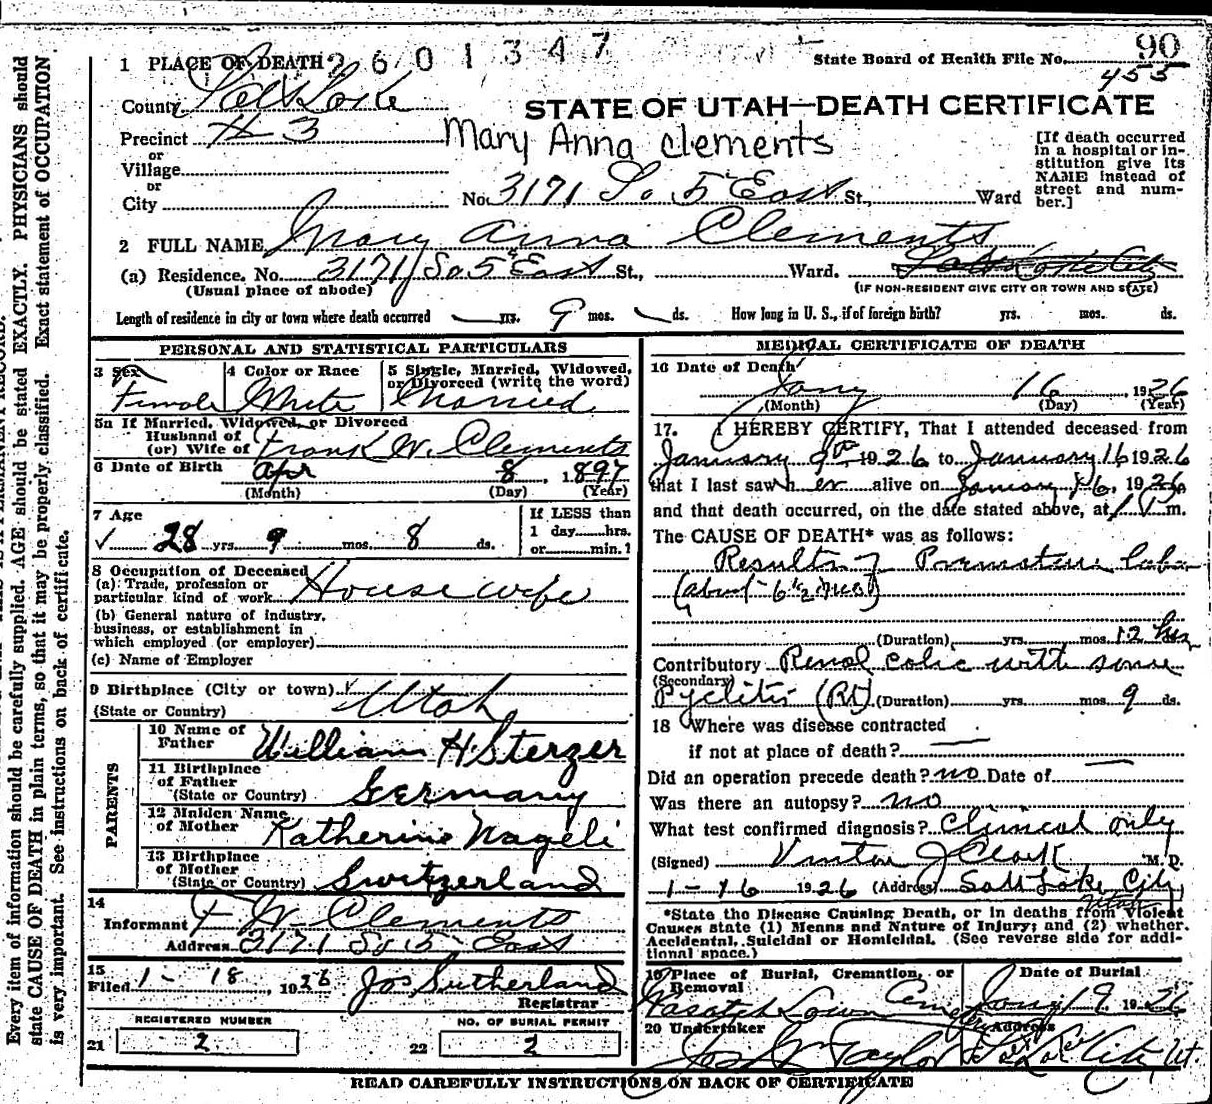 2601347
State Board of Health File No. 90
455
1 PLACE OF DEATH
County Salt Lake
STATE OF UTAH—DEATH CERTIFICATE
Precinct # 3
Mary Anna Clements
or
Village
or
City
No. 3171 So 5th East St., Ward
[If death occurred
in a hospital or in-
stitution give its
NAME instead of
street and num-
ber.]
2 FULL NAME Mary Anna Clements
(a) Residence. No. 3171 So 5th East St., Ward. Salt Lake City
(Usual place of abode)
(IF NON-RESIDENT GIVE CITY OR TOWN AND STATE)
Length of residence in city or town where death occurred yrs. 9 mos. ds. How long in U. S., if of foreign birth? yrs. mos. ds.
PERSONAL AND STATISTICAL PARTICULARS
3 Sex
Female
4 Color or Race
White
5 Single, Married, Widowed,
or Divorced (write the word)
Married
5a If Married, Widowed, or Divorced
Husband of
(or) Wife of Frank W. Clements
6 Date of Birth Apr 8, 1897
(Month) (Day) (Year)
7 Age
28 yrs. 9 mos. 8 ds.
If LESS than
1 day hrs.
or min.?
8 Occupation of Deceased
(a) Trade, profession or
particular kind of work House wife
(b) General nature of industry,
business, or establishment in
which employed (or employer)
(c) Name of Employer
9 Birthplace (City or town)
(State or Country) Utah
PARENTS
10 Name of
Father William H Sterzer
11 Birthplace
of Father
(State or Country) Germany
12 Maiden Name
of Mother Katherine Nageli
13 Birthplace
of Mother
(State or Country) Switzerland
14
Informant F W Clements
Address 3171 So 5 East
15
Filed 1- 18, 1926 Jos Sutherland
Registrar
REGISTERED NUMBER
21 2
NO. OF BURIAL PERMIT
22 2
MEDICAL CERTIFICATE OF DEATH
16 Date of Death
Jany 16 1926
(Month) (Day) (Year)
17. I HEREBY CERTIFY, That I attended deceased from
January 9th 1926 to January 16 1926
that I last saw her alive on January 16, 1926
and that death occurred, on the date stated above, at 1 P m.
The CAUSE OF DEATH* was as follows:
Results of Premature labor
(about 6½ mos)
(Duration) yrs. mos. 12 hrs
Contributory Renal colic with some
(Secondary)
Pyelitis (Rt) (Duration) yrs. mos. 9 ds.
18 Where was disease contracted
if not at place of death?
Did an operation precede death? no Date of
Was there an autopsy? no
What test confirmed diagnosis? Clinical only
(Signed) Vinton J Clark M. D.
1-16 1926 (Address) Salt Lake City,
Utah
*State the Disease Causing Death, or in deaths from Violent
Causes state (1) Means and Nature of Injury; and (2) whether
Accidental, Suicidal or Homicidal. (See reverse side for addi-
tional space.)
19 Place of Burial, Cremation, or
Removal
Wasatch Lawn Cemetery
Date of Burial
Jany 19 1926
20 Undertaker
Jos Wm Taylor
Address
Salt Lake City, Ut.
READ CAREFULLY INSTRUCTIONS ON BACK OF CERTIFICATE
Every item of information should be carefully supplied. AGE should be stated EXACTLY. PHYSICIANS should
state CAUSE OF DEATH in plain terms, so that it may be properly classified. Exact statement of OCCUPATION
is very important. See instructions on back of certificate.